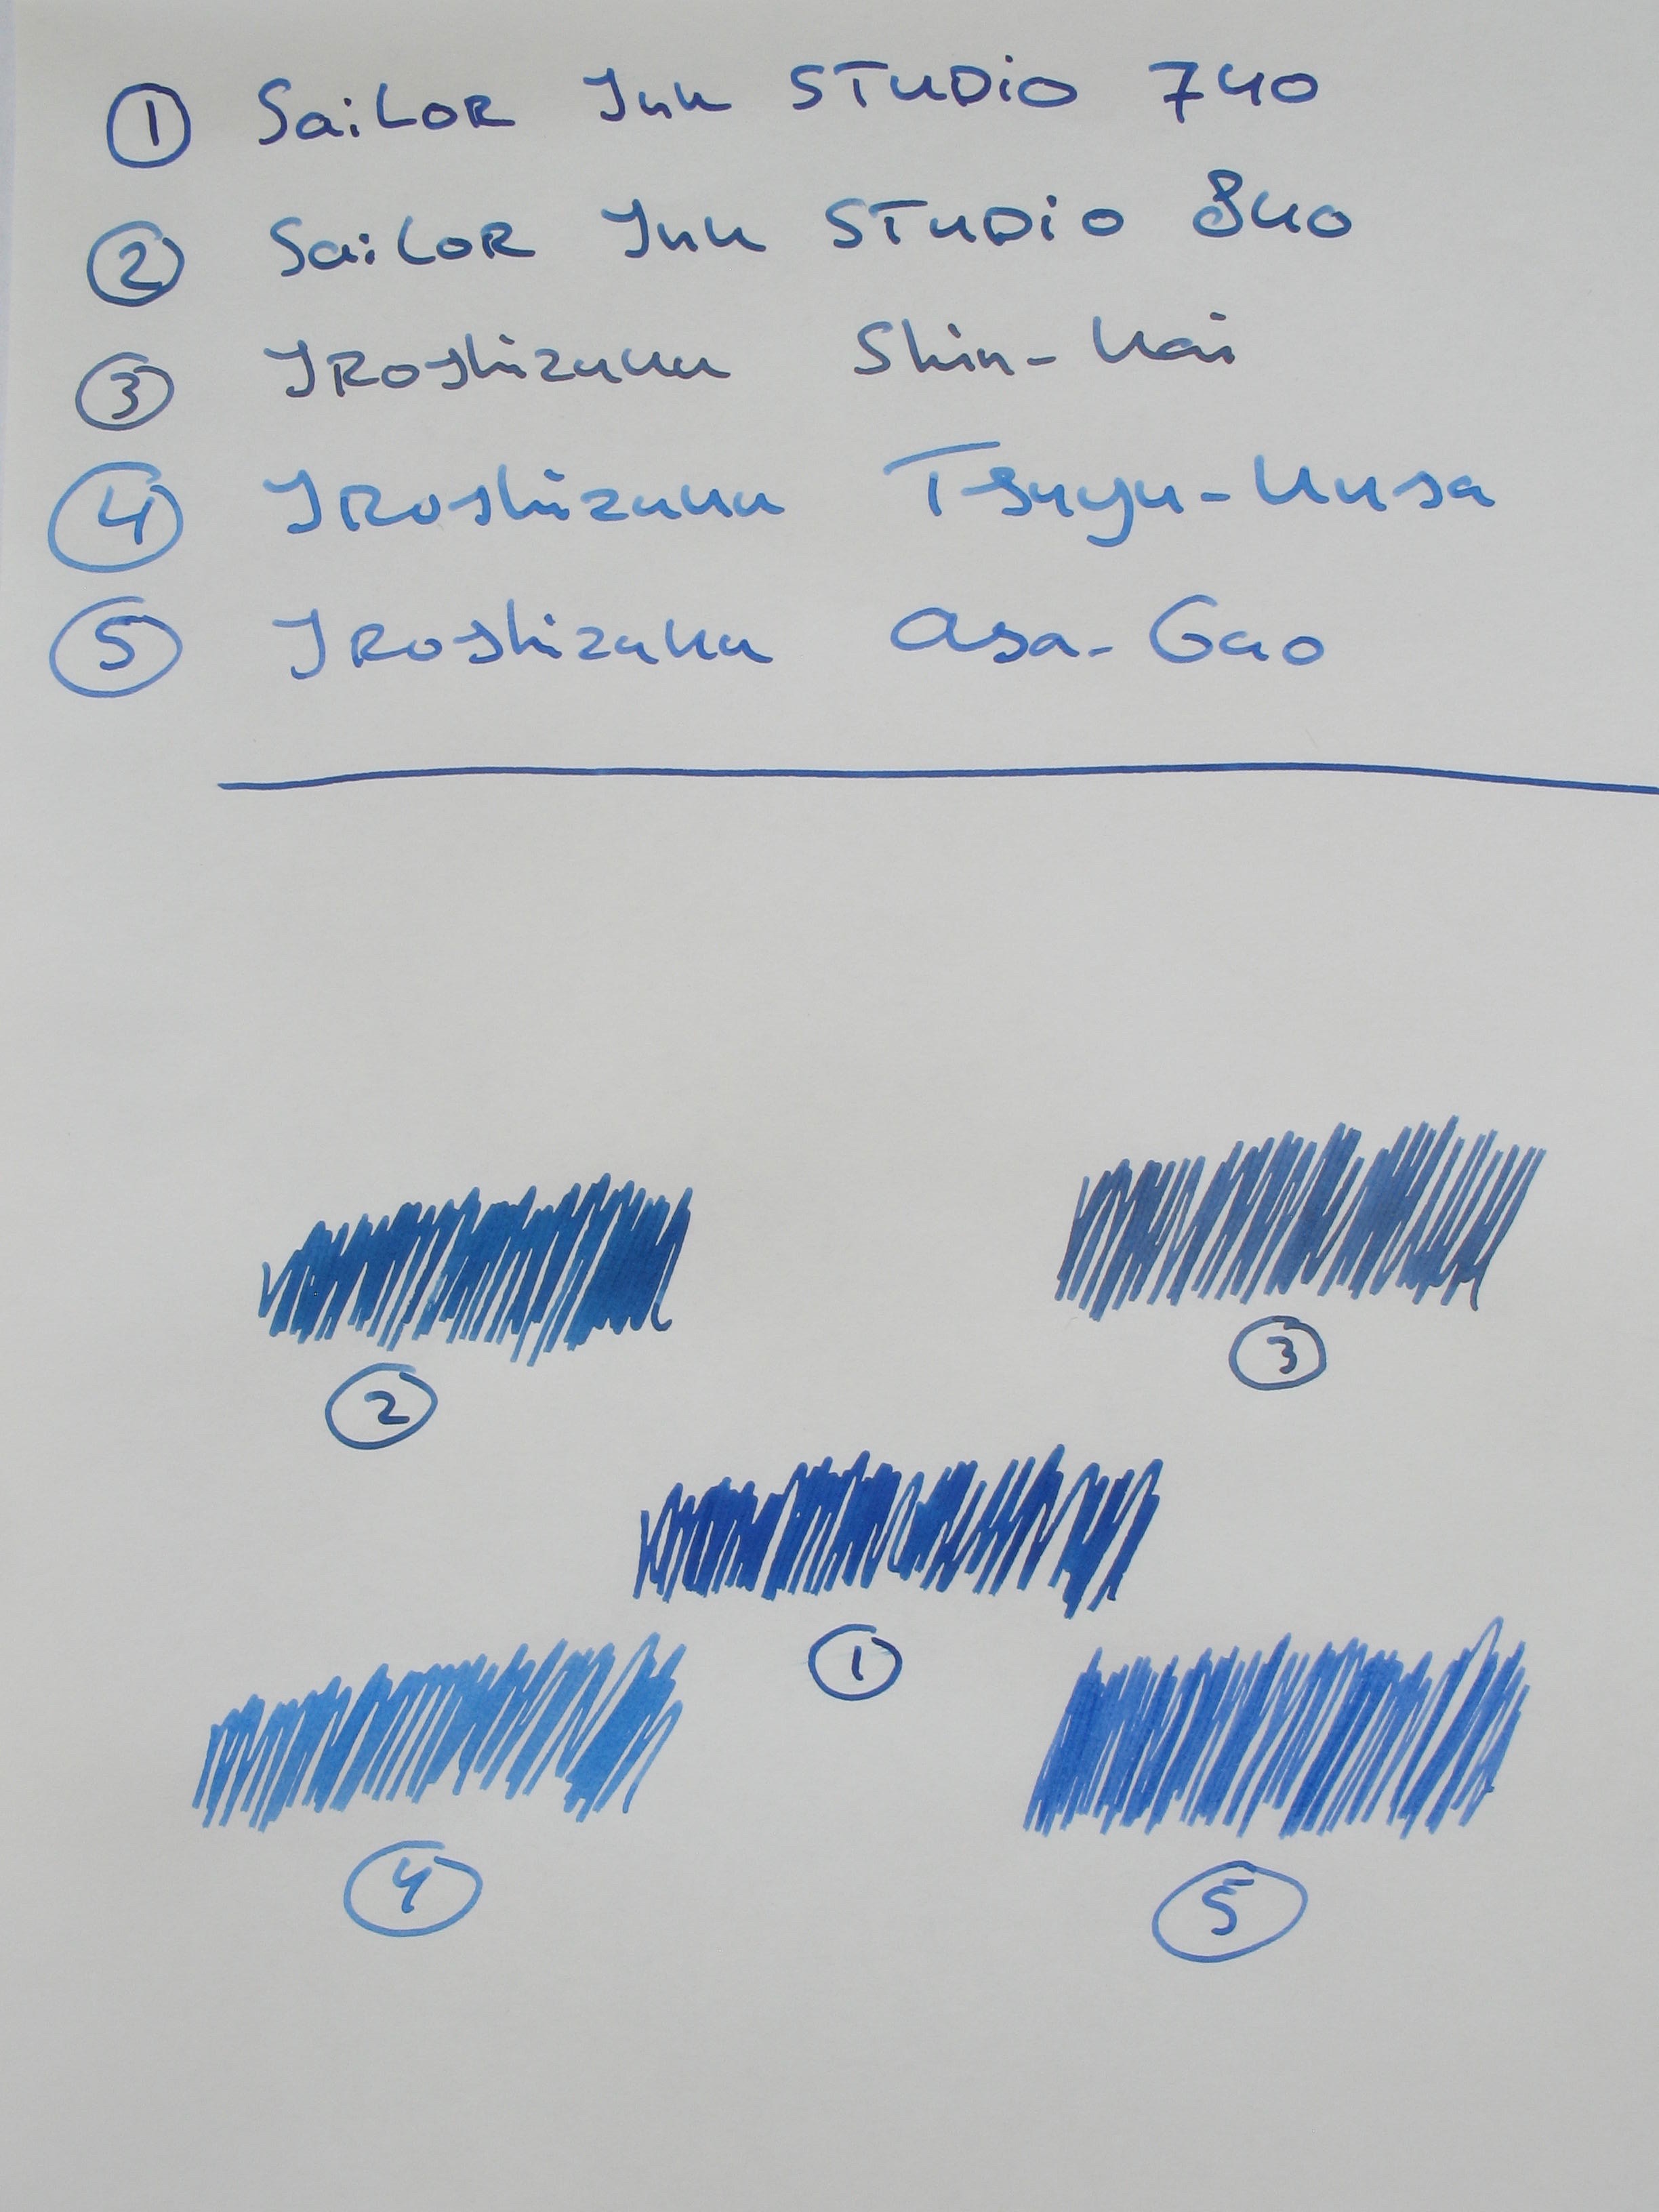 ① Sailor Ink STUDIO 740
② Sailor Ink STUDIO 840
③ Iroshizuku Shin-Kai
④ Iroshizuku Tsuyu-Kusa
⑤ Iroshizuku Asa-Gao
② ③
①
④ ⑤